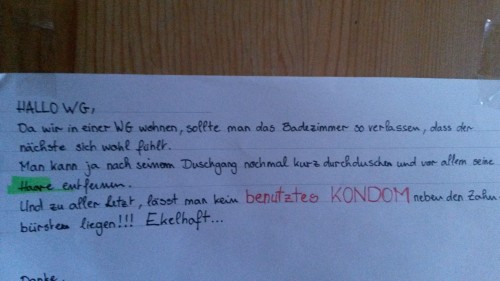 HALLO WG,
Da wir in einer WG wohnen, sollte man das Badezimmer so verlassen, dass der
nächste sich wohl fühlt.
Man kann ja nach seinem Duschgang nochmal kurz durchduschen und vor allem seine
Haare entfernen.
Und zu aller letzt, lässt man kein benutztes KONDOM neben den Zahn-
bürsten liegen!!! Ekelhaft...
Danke.